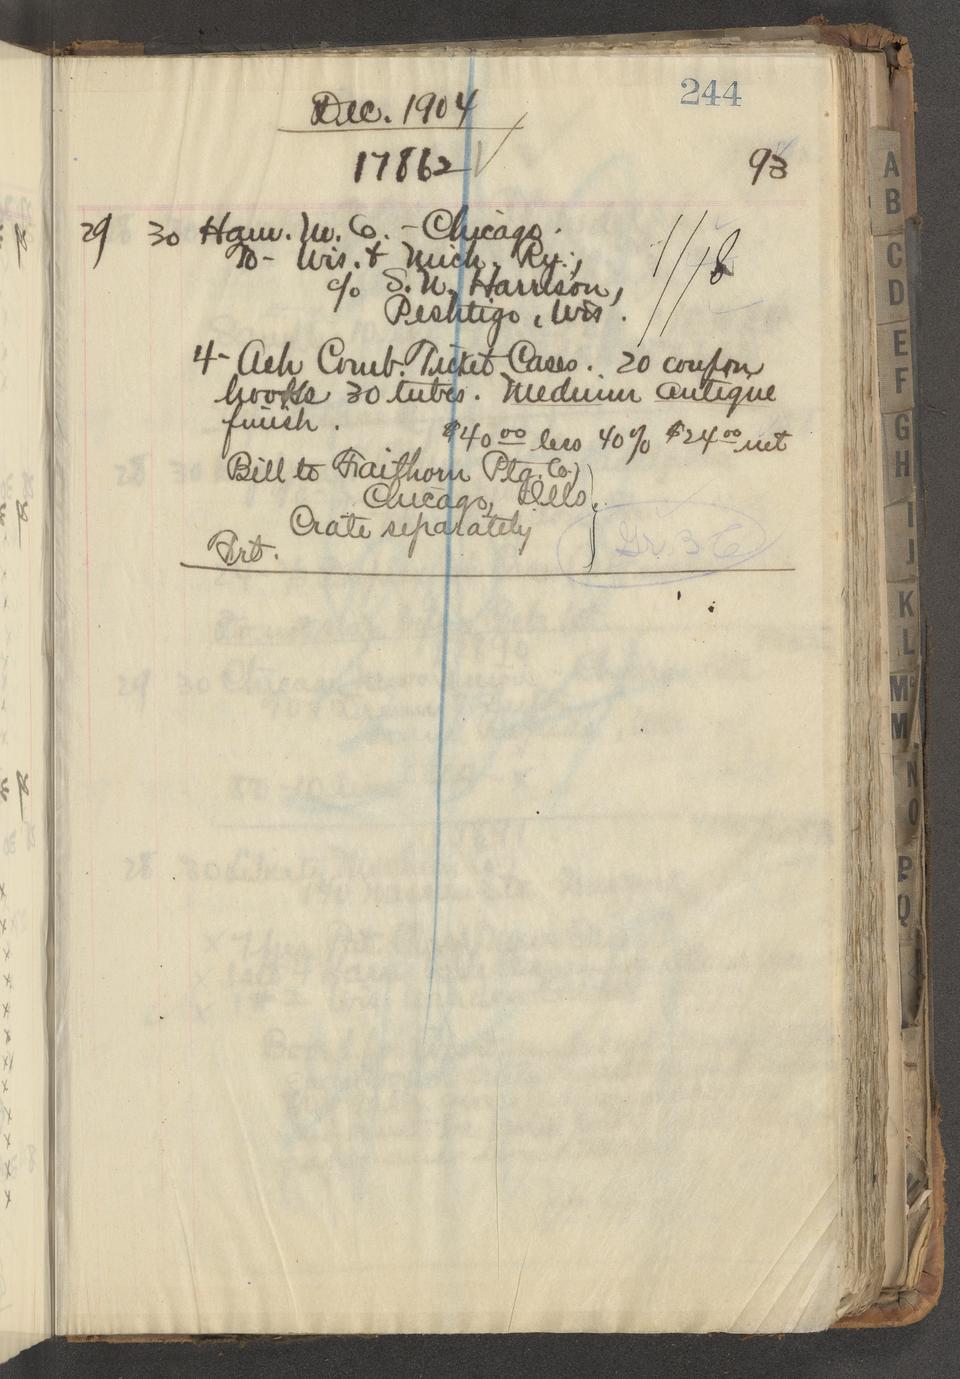 244
Dec. 1904
17862 93
29 30 Ham. M. Co. - Chicago.
To- Wis. & Mich. Ry.,
c/o S. N. Harrison,
Peshtigo, Wis.
4- Ash Comb. Ticket Cases. 20 coupon
books 30 tubes. Medium antique
finish.
$40.00 less 40% $24.00 net
Bill to Faithorn Ptg. Co.,
Chicago, Ills.
Crate separately
Frt.
A
B
C
D
E
F
G
H
I
J
K
L
M
M
N
O
P
Q